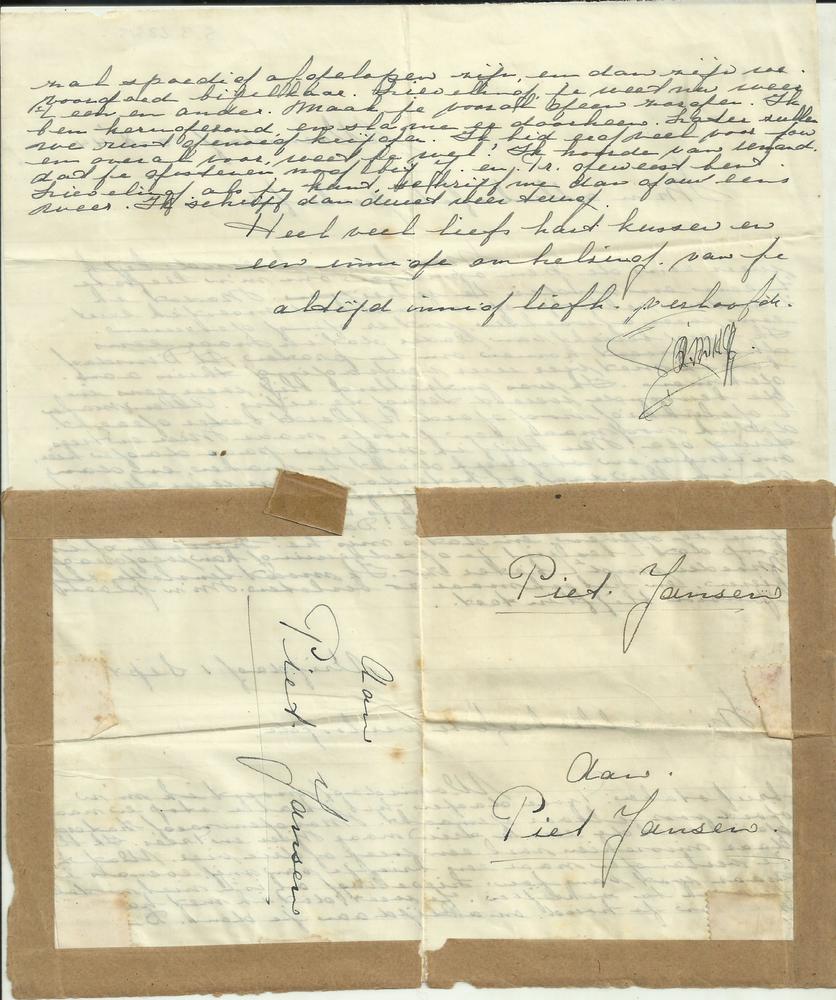 zal spoedig afgelopen zijn, en dan zijn we
voorgoed bij elkaar. Lieveling, je weet nu weer
't een en ander. Maak je vooral geen zorgen. Ik
ben kerngezond, en sla me er doorheen. Later zullen
we rust genoeg krijgen. Ik bid erg veel voor jou
en overal voor, weet je wel! Ik hoorde van iemand
dat je gisteren nog bij en Tr. geweest bent
Lieveling als je kunt, schrijf me dan gauw eens
weer. Ik schrijf dan direct weer terug.
Heel veel liefs hart kussen en
een innige omhelsing. van je
altijd innig liefh. verloofde.
Piet. Jansen
Aan
Piet Jansen
Aan.
Piet Jansen.